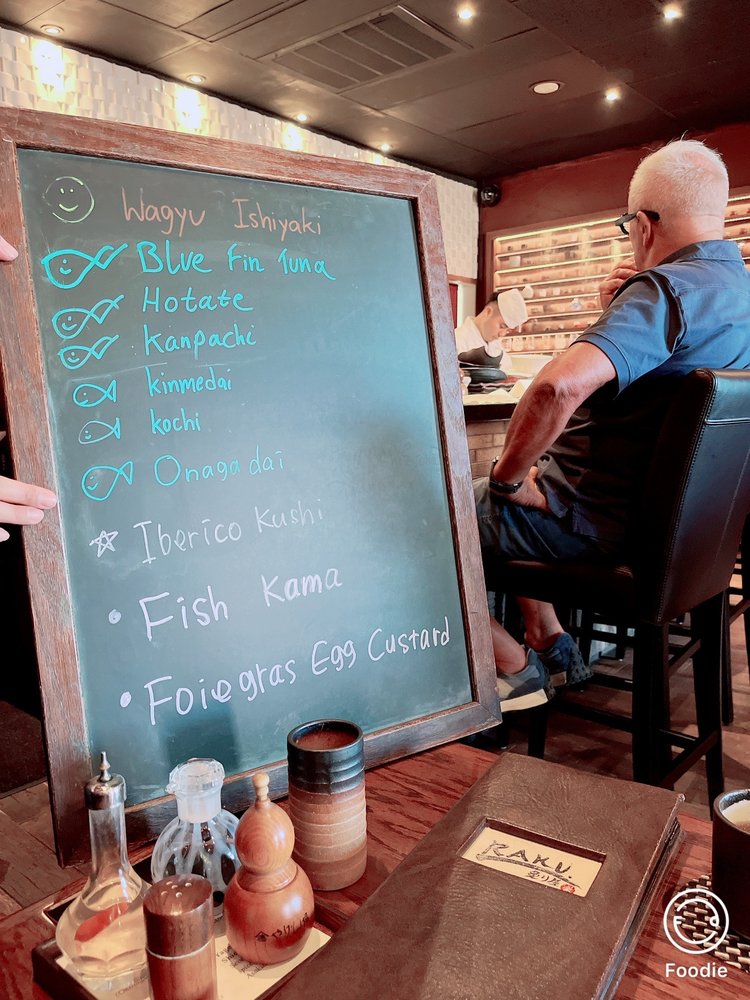 Wagyu Ishiyaki
Blue Fin Tuna
Hotate
Kanpachi
kinmedai
kochi
Onagadai
Iberico Kushi
Fish Kama
Foiegras Egg Custard
RAKU
Foodie